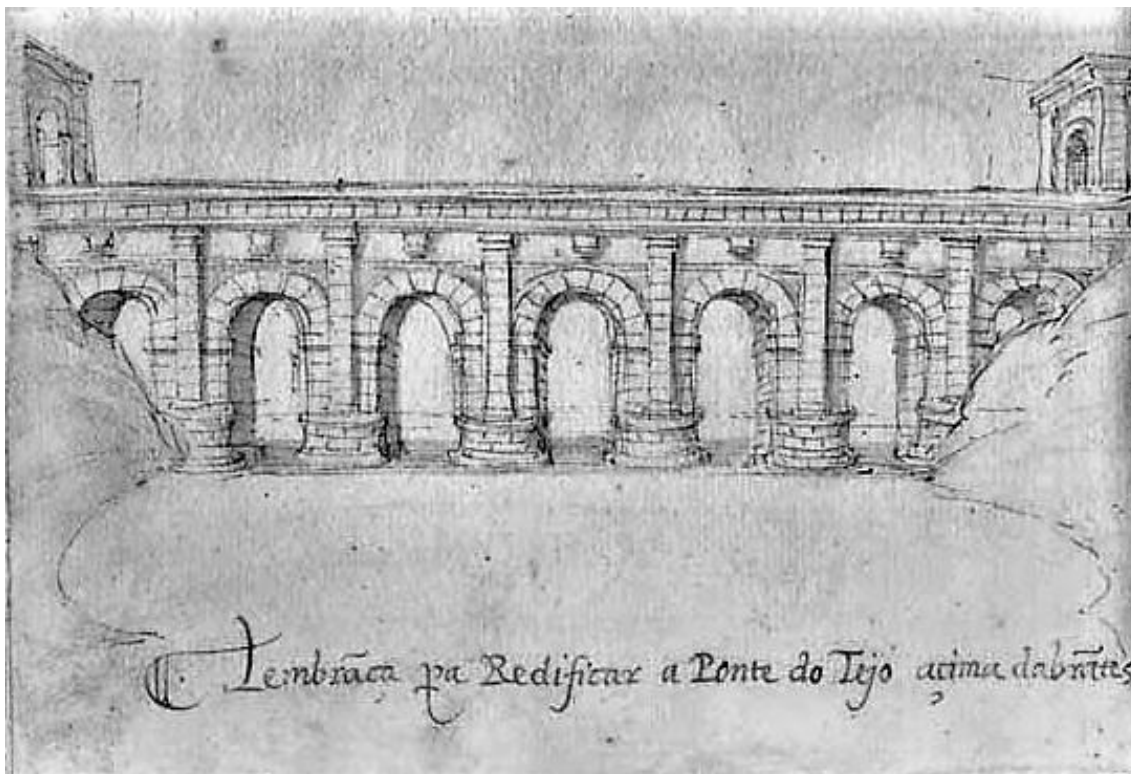 Lembrãça pa Redificar a Ponte do Tejo açima dabrãtes